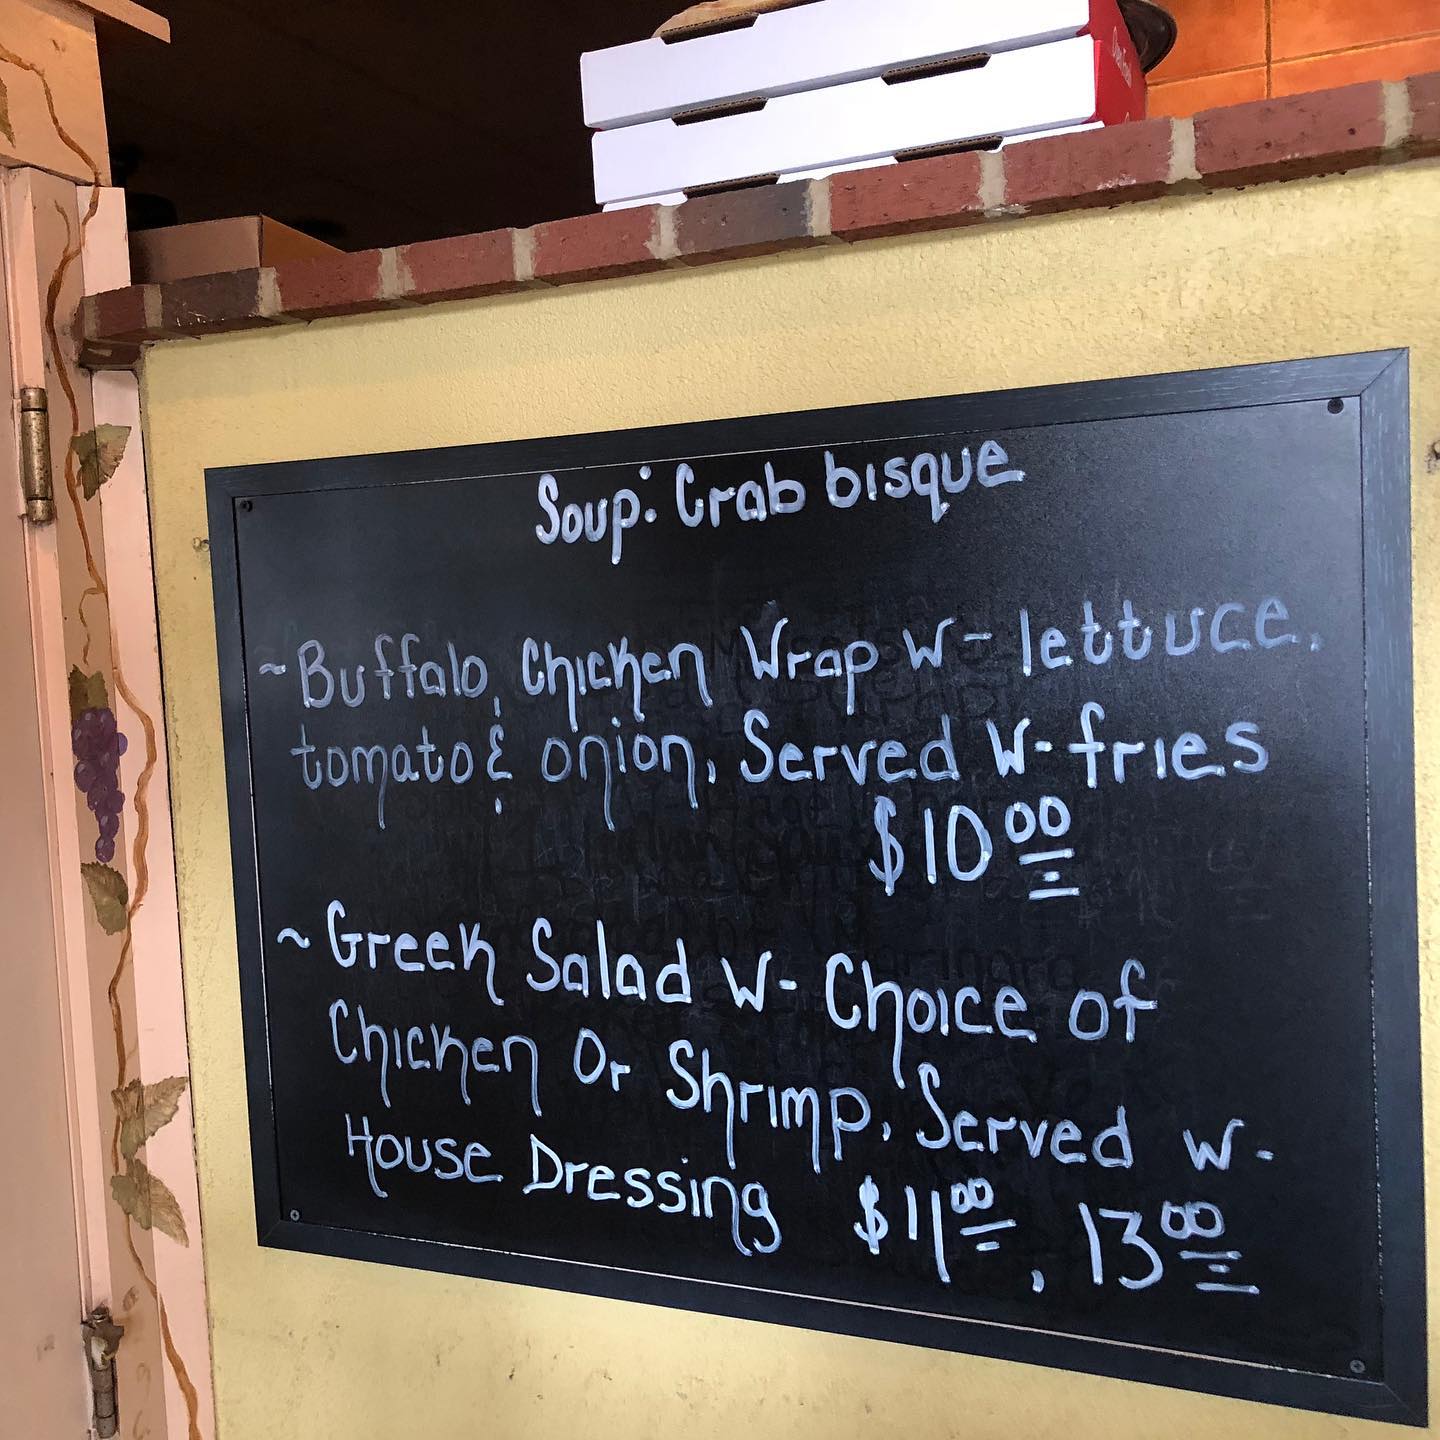 Soup: Crab bisque
~ Buffalo Chicken Wrap W- lettuce,
tomato & onion, Served W- fries
$10.00
~ Greek Salad W- Choice of
Chicken Or Shrimp, Served W-
House Dressing $11.00, 13.00